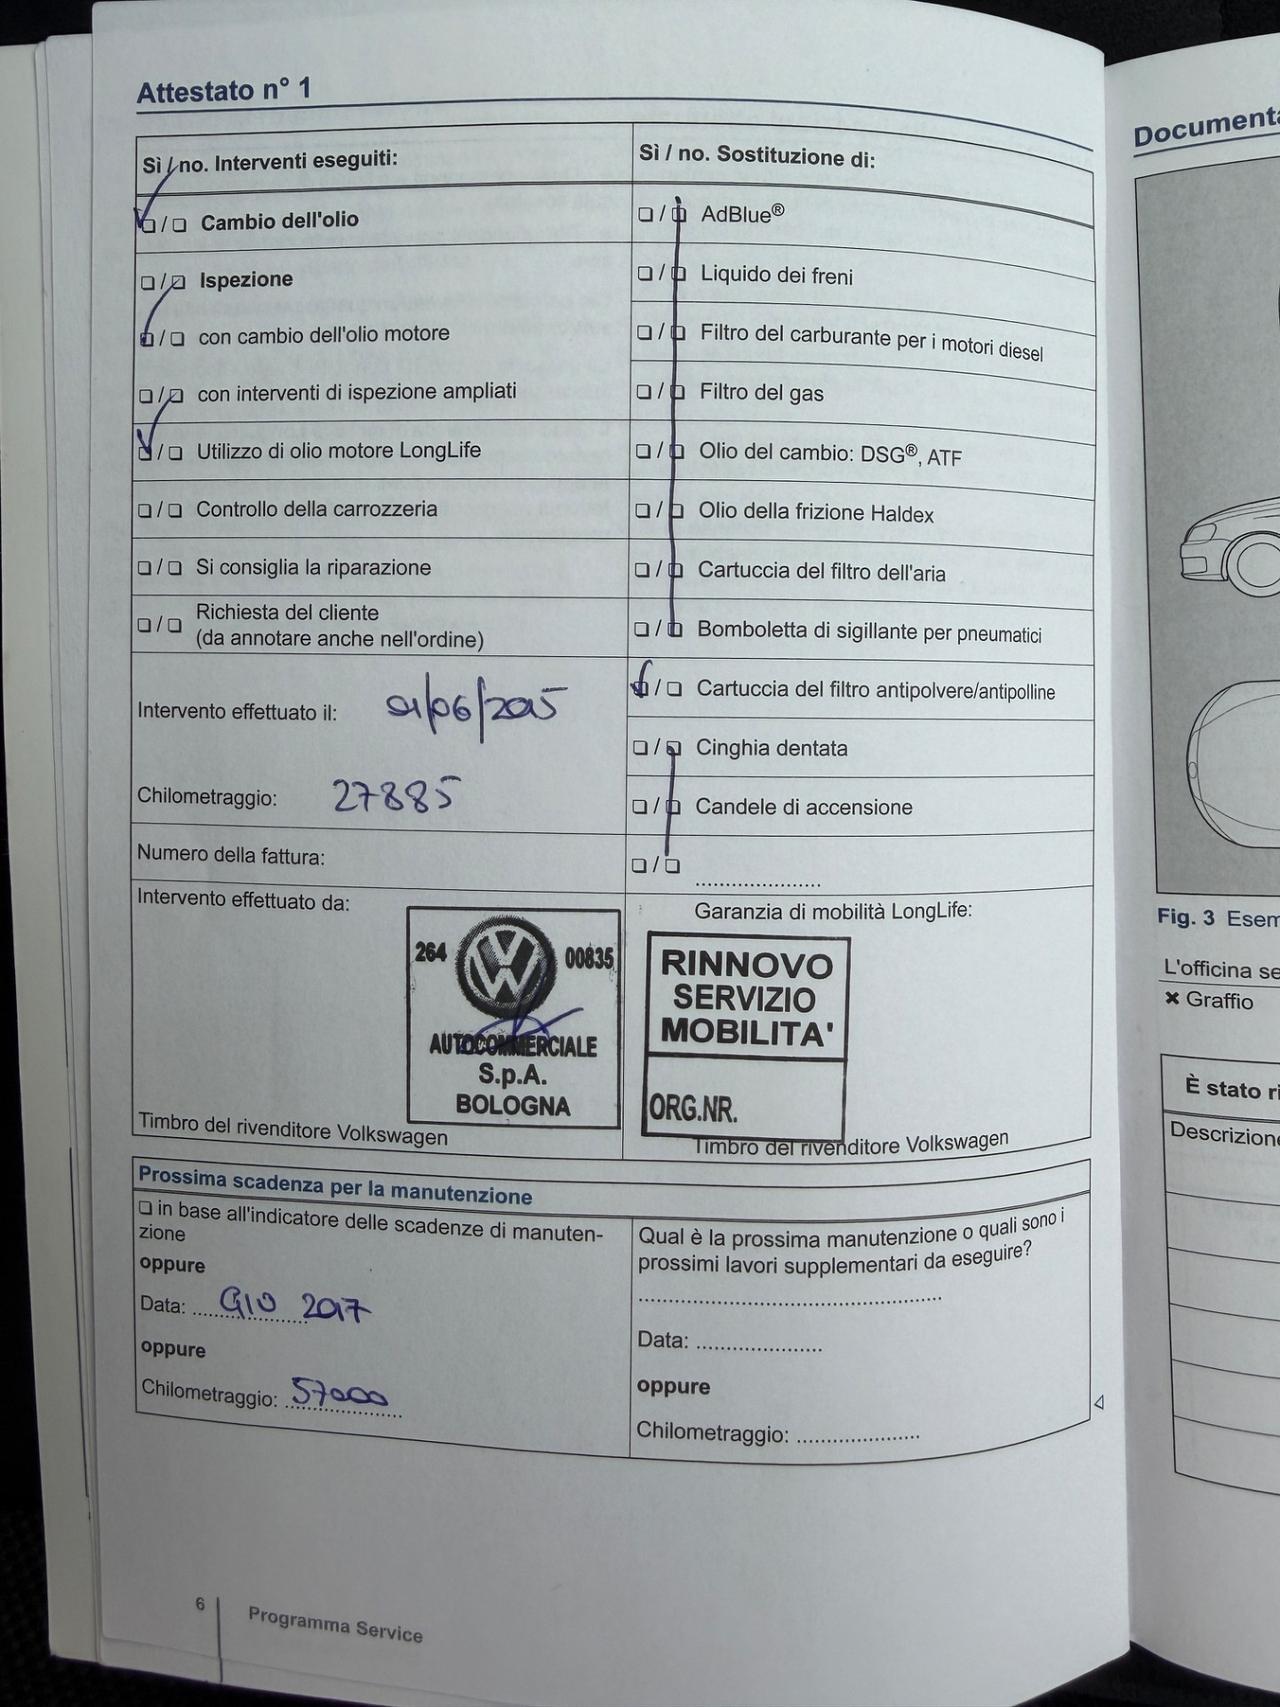 Attestato n° 1
Sì / no. Interventi eseguiti:
❏ / ❏ Cambio dell'olio
❏ / ❏ Ispezione
❏ / ❏ con cambio dell'olio motore
❏ / ❏ con interventi di ispezione ampliati
❏ / ❏ Utilizzo di olio motore LongLife
❏ / ❏ Controllo della carrozzeria
❏ / ❏ Si consiglia la riparazione
❏ / ❏ Richiesta del cliente
(da annotare anche nell'ordine)
Intervento effettuato il: 01/06/2015
Chilometraggio: 27885
Numero della fattura:
Intervento effettuato da:
264 00835
AUTOCOMMERCIALE
S.p.A.
BOLOGNA
Timbro del rivenditore Volkswagen
Sì / no. Sostituzione di:
❏ / ❏ AdBlue®
❏ / ❏ Liquido dei freni
❏ / ❏ Filtro del carburante per i motori diesel
❏ / ❏ Filtro del gas
❏ / ❏ Olio del cambio: DSG®, ATF
❏ / ❏ Olio della frizione Haldex
❏ / ❏ Cartuccia del filtro dell'aria
❏ / ❏ Bomboletta di sigillante per pneumatici
❏ / ❏ Cartuccia del filtro antipolvere/antipolline
❏ / ❏ Cinghia dentata
❏ / ❏ Candele di accensione
❏ / ❏ .....................
Garanzia di mobilità LongLife:
RINNOVO
SERVIZIO
MOBILITA'
ORG.NR.
Timbro del rivenditore Volkswagen
Prossima scadenza per la manutenzione
❏ in base all'indicatore delle scadenze di manuten-
zione
oppure
Data: GIU 2017
oppure
Chilometraggio: 57000
Qual è la prossima manutenzione o quali sono i
prossimi lavori supplementari da eseguire?
Data: .....................
oppure
Chilometraggio: .....................
6 Programma Service
Documenta
Fig. 3 Esem
L'officina se
✖ Graffio
È stato ri
Descrizione